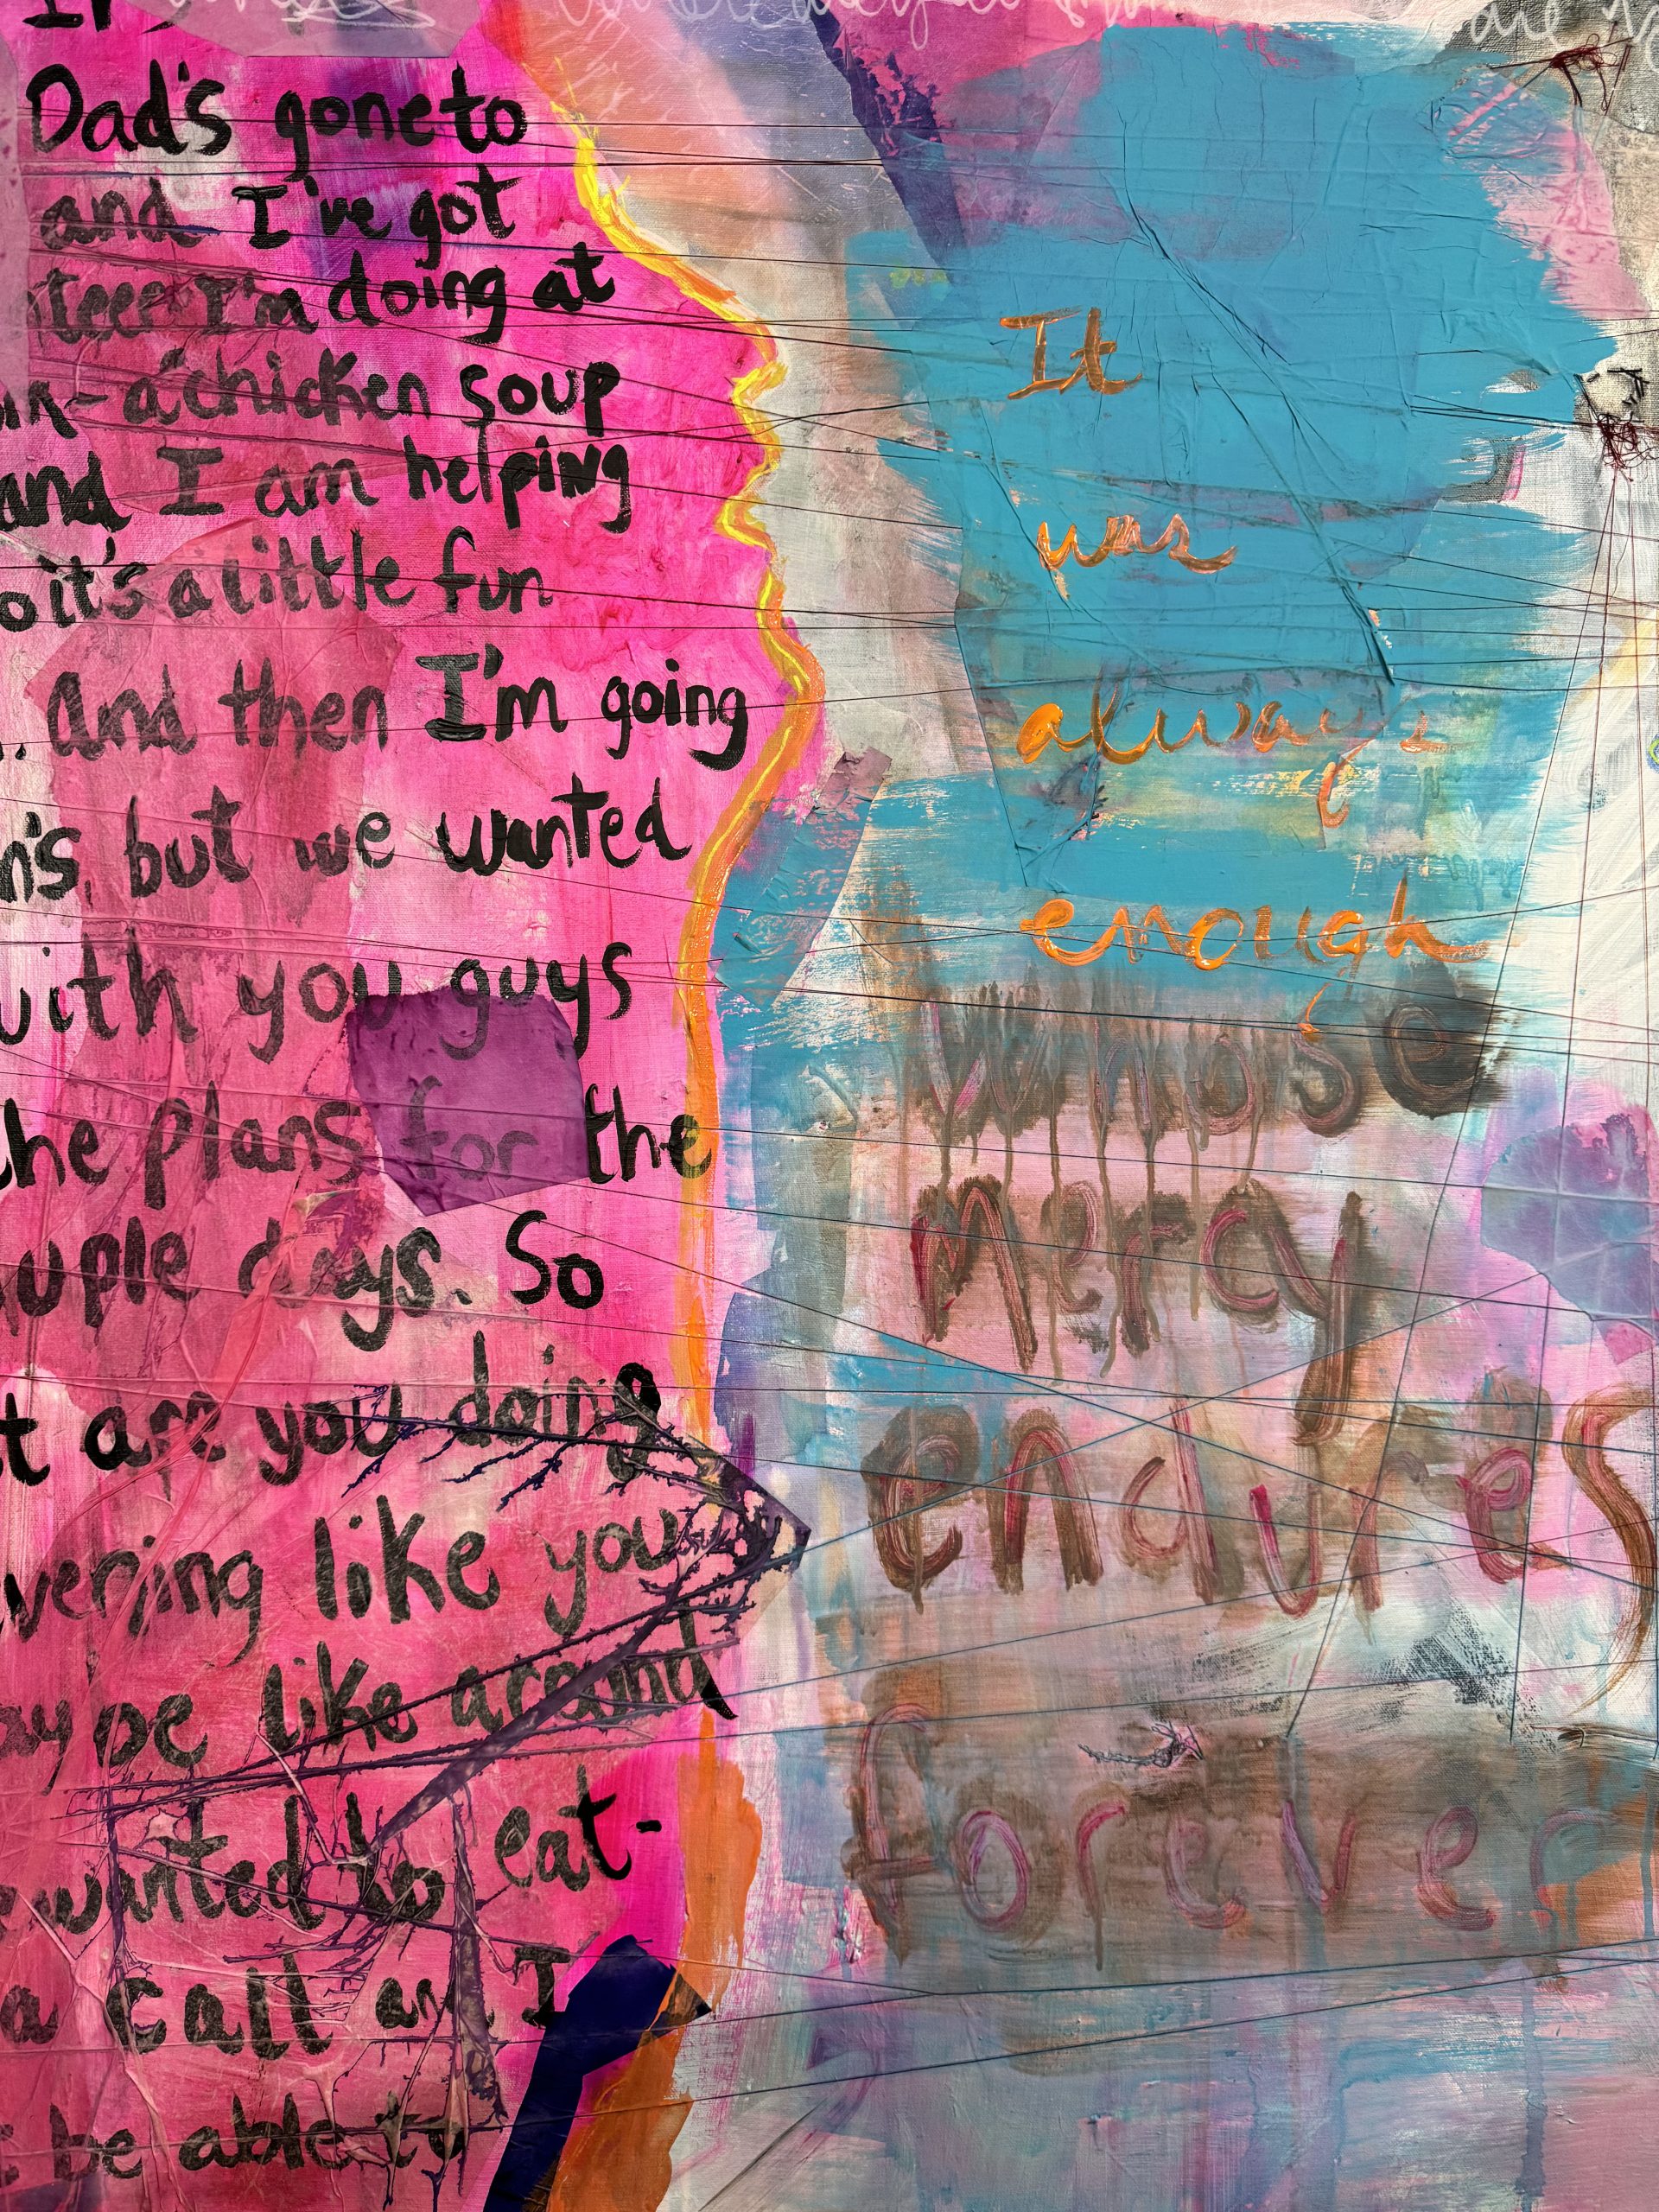 Dad's gone to
and I've got
I'm doing at
a chicken soup
and I am helping
it's a little fun
and then I'm going
but we wanted
with you guys
the plans for the
days. So
are you doing
like you
like around
wanted to eat-
a call and I
be able to
are
It
was
always
enough
whose
mercy
endures
forever